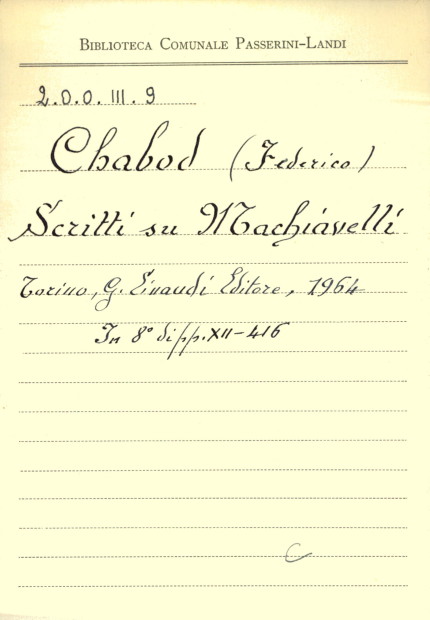 BIBLIOTECA COMUNALE PASSERINI-LANDI
2.0.0. III. 9
Chabod (Federico)
Scritti su Machiavelli
Torino, G. Einaudi Editore, 1964
In 8° di pp. XII-416
C